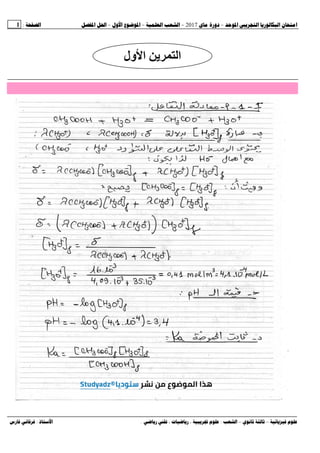 امتحان البكالوريا التجريبي الموحد - دورة ماي 2017 - الشعب العلمية - الموضوع الأول - الحل المفصل الصفحة 1
التمرين الأول
I - 1 - P - معادلة التفاعل :
CH3COOH + H3O+ = CH3COO- + H3O+
ب - عبارة [H3O+]f بدلالة δ، λ(CH3COO-) ، λ(H3O+) :
يحتوي الوسط التفاعلي على الشوارد H3O+ ، CH3COO-
مع إهمال HO- لذا يكون :
δ = λ(CH3COO-) [CH3COO-]f + λ(H3O+) [H3O+]f
وحيث أن : [CH3COO-]f = [H3O+]f يصبح :
δ = λ(CH3COO-)[H3O+]f + λ(H3O+) [H3O+]f
δ = (λ(CH3COO-) + λ(H3O+)) [H3O+]f
[H3O+]f = δ / λ(CH3COO-) + λ(H3O+)
[H3O+]f = 16.10-3 / 4,09.10-3 + 35.10-3 = 0,41 mol/m3 = 4,1.10-4 mol/L
ج - قيمة الـ pH :
pH = - log [H3O+]f
pH = - log (4,1.10-4) = 3,4
د - ثابت الحموضة Ka :
Ka = [CH3COO-]f [H3O+]f / [CH3COOH]f
هذا الموضوع من نشر ستوديا©Studyadz
علوم فيزيائية - ثالثة ثانوي - الشعب : علوم تجريبية ، رياضيات ، تقني رياضي الأستاذ : فرقاني فارس